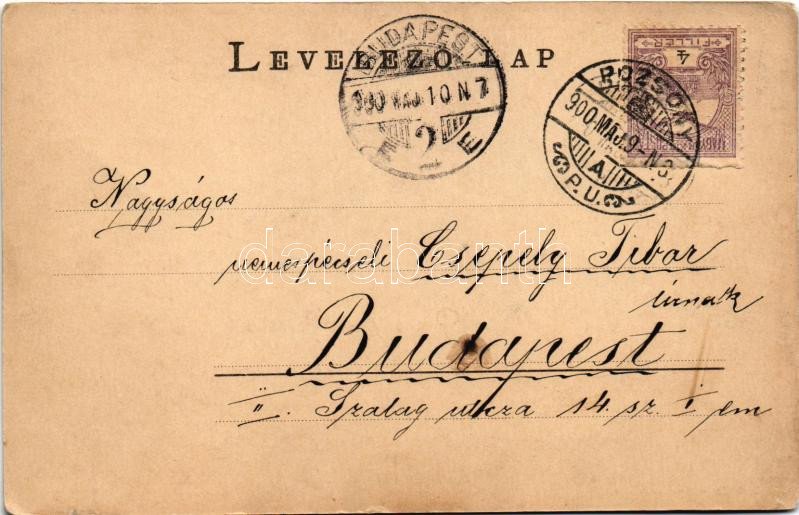 LEVELEZŐ-LAP
BUDAPEST
900 MÁJ 10 N 7
2
4
FILLÉR
POZSONY
900 MÁJ. 9. N 3.
A
P.U.
Nagyságos
nemespécseli Csepely Tibor
úrnak
Budapest
II. Szalag utcza 14. sz. I em
darabanth